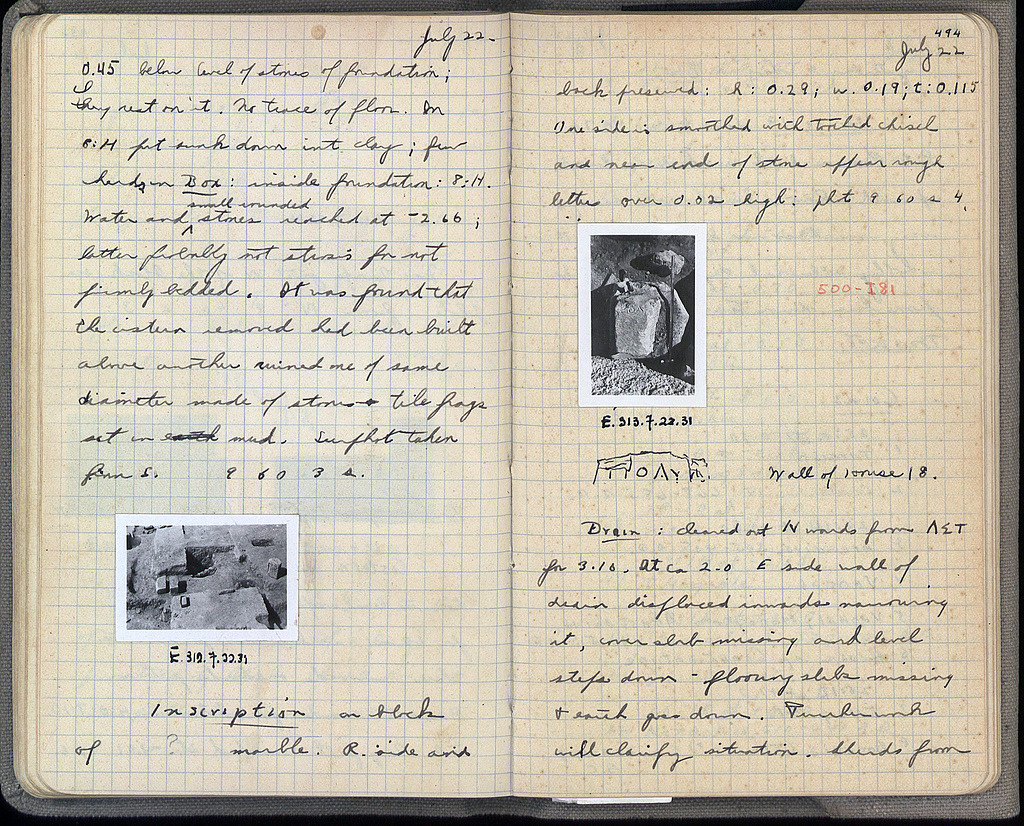 July 22-
0.45 below level of stones of foundation;
They rest on it. No trace of floor. In
8:H pit sunk down into clay; few
herds in Box: inside foundation: 8:H.
small rounded
Water and stones reached at -2.66;
latter probably not stereo for not
firmly bedded. It was found that
the cistern removed had been built
above another ruined one of same
diameter made of stones + tile frags
set in earth mud. Snapshot taken
from S. 9 60 3 s.
E.312.7.22.31
Inscription on block
of ? marble. R. side and
494
July 22
back preserved: h: 0.29; w. 0.19; t: 0.115
One side is smoothed with toothed chisel
and near end of stone appear rough
letters over 0.02 high: pht 9 60 2 4.
500-I81
E.313.7.22.31
ΠΟΛΥ Wall of House 18.
Drain: cleared out N wards from ΛΣΤ
for 3.10. At ca 2.0 E side wall of
drain displaced inwards narrowing
it, cover slab missing and level
steps down - flooring slabs missing
& earth goes down. Further work
will clarify situation. Sherds from